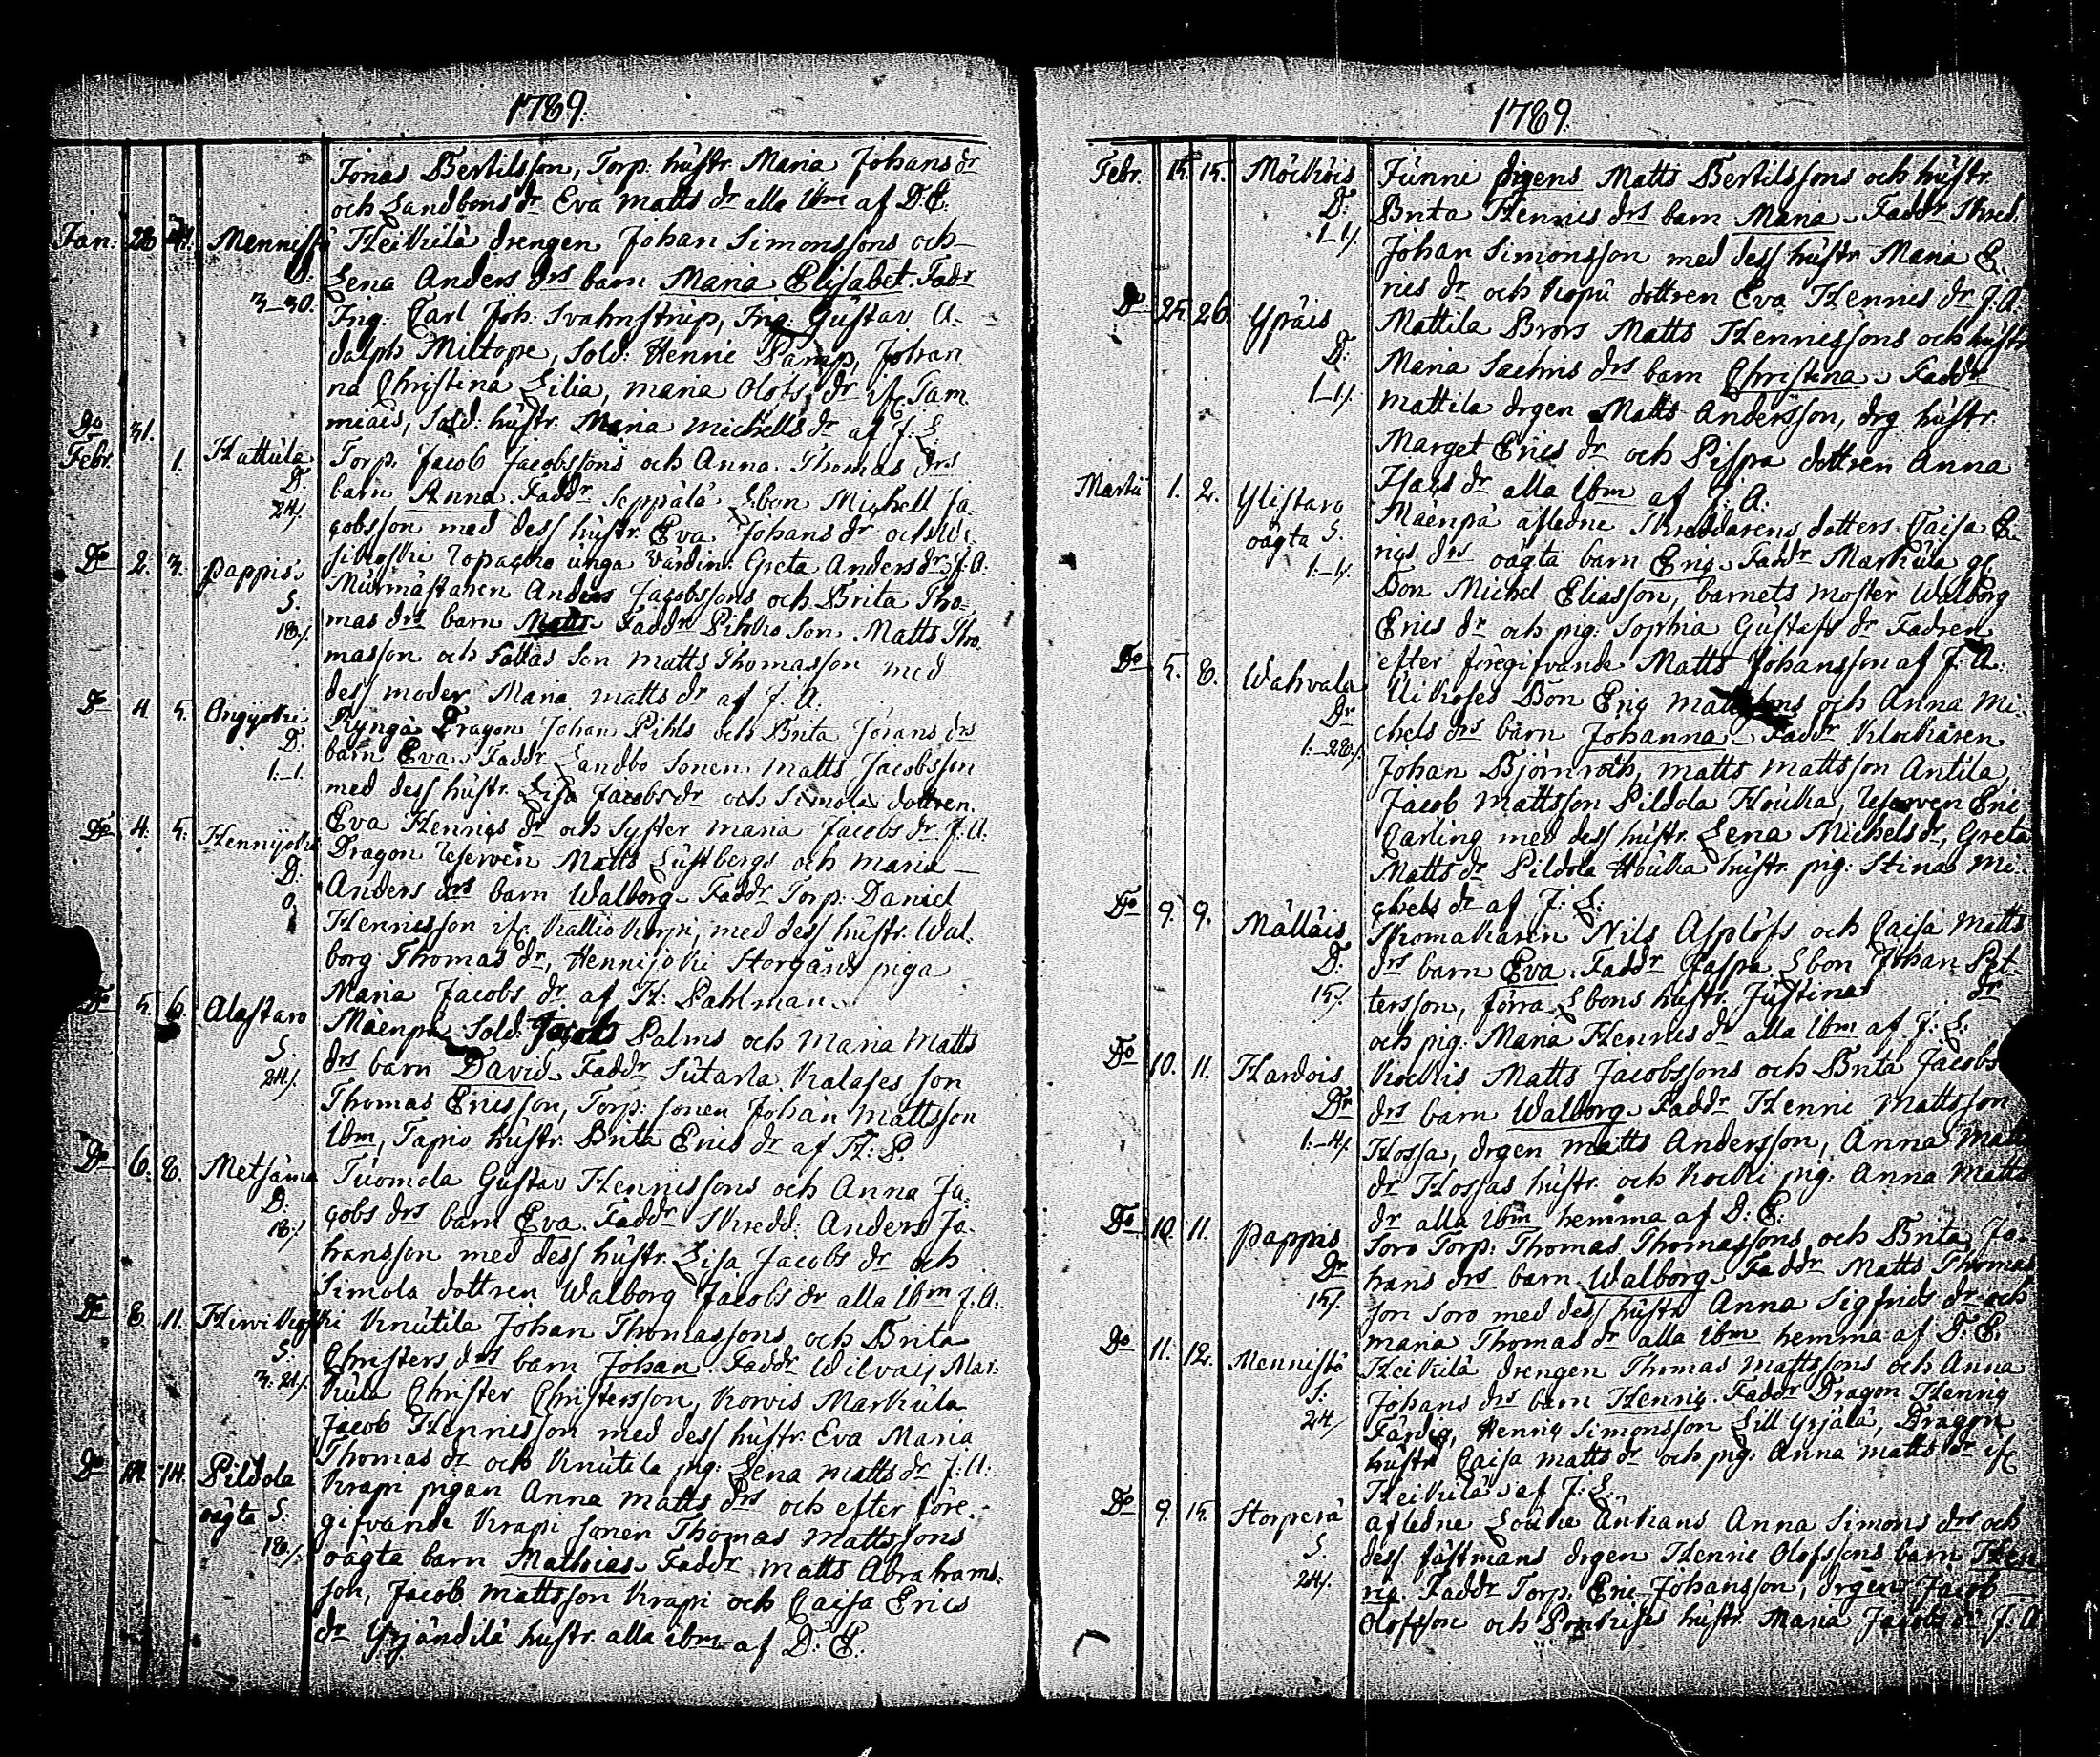 1789.
Jonas Bertilsson, Torp: hustr. Maria Johans dr
och Landbons dr Eva Matts dr alla ibm af D: E.
Jan: 28 31. Mennistö Heikkilä drengen Johan Simonssons och
D: Lena Anders drs barn Maria Elisabet. Faddr
3–30. Ing: Carl Joh: Svahnström, Ing. Gustav A-
dolph Miltope, Sold: Henric Tamp, Johan
na Christina Lilia, Maria Olofs dr if. Tam
miais, Sold: hustr. Maria Michells dr af J: L.
Do 31. Febr. 1. Hattula Torp. Jacob Jacobssons och Anna Thomas drs
D. barn Anna. Faddr Seppälä Lbon Michell Ja-
24/. cobsson med dess hustr. Eva Johans dr och
Do 2. 3. Pappis unga Värdin: Greta Anders dr J: A:
S. Murmästaren Anders Jacobssons och Brita Tho-
18/. mas drs barn Matts. Faddr Pihko Son Matts Tho-
masson och Fallas Son Matts Thomasson med
dess moder Maria Matts dr af J: A.
Do 4. 5. Ongijoki Ryngä Dragon Johan Pihls och Brita Jörans drs
D: barn Eva. Faddr Landbo Sonen Matts Jacobsson
1.–1. med dess hustr. Lisa Jacobs dr och Simola dottren
Do 4. 5. Hennijoki Eva Henrics dr och Syster Maria Jacobs dr J: A.
D. Dragon Reserven Matts Lustbergs och Maria
0. Anders drs barn Walborg. Faddr Torp: Daniel
Henricsson if. Kallio Korpi, med dess hustr. Wal-
borg Thomas dr, Hennijoki Storgårds piga
Maria Jacobs dr af H: Pahlman.
Do 5. 6. Alastaro Mäenpä Sold: Jacob Palms och Maria Matts
S. drs barn David. Faddr Sutarla Kalases son
24/. Thomas Ericsson, Torp: sonen Johan Mattsson
ibm, Tapio hustr. Brita Erics dr af H: P.
Do 6. 8. Metsämä Tuomola Gustav Henricssons och Anna Ja-
D. cobs drs barn Eva. Faddr Skredd: Anders Jo-
18/. hansson med dess hustr. Lisa Jacobs dr och
Simola dottren Walborg Jacobs dr alla ibm J: A:
Do 8. 11. Hirvikoski Knutila Johan Thomassons och Brita
S. Christers drs barn Johan. Faddr Mar-
3. 21/. kula Christer Christersson, Korvis Markula
Jacob Henricsson med dess hustr. Eva Maria
Thomas dr och Knutila pig: Lena Matts dr J: A:
Do 14. 14. Pildola Krapi pigan Anna Matts drs och efter före-
oägta S. gifvande Krapi sonen Thomas Mattssons
18/. oägta barn Mathias. Faddr Matts Abrahams-
son, Jacob Mattsson Krapi och Caisa Erics
dr Yrjändilä hustr. alla ibm af D: E.
1789.
Febr. 15. 15. Möcköis Junni drgens Matts Bertilssons och hustr.
D: Brita Henrics drs barn Maria. Faddr Skred.
1–1/. Johan Simonsson med dess hustr Maria E-
rics dr och Kopu dottren Eva Henrics dr J: A
Do 25. 26. Ypäis Mattila Brors Matts Henricssons och hustr
D: Maria Sachris drs barn Christina. Faddr
1–1/. Mattila drgen Matts Andersson, drg hustr.
Marget Erics dr och Pispa dottren Anna
Isacs dr alla ibm af J: A.
Martii 1. 2. Ylistaro Mäenpä afledne Skreddarens dotters Caisa E-
oägta S. rics drs oägta barn Eric. Faddr Markula gl.
1.–1/. Bon Michel Eliasson, barnets moster Walborg
Erics dr och pig: Sophia Gustafs dr Fadren
efter föregifvande Matts Johansson af J: A.
Do 5. 8. Wahvala Uikoses Bon Eric Mattssons och Anna Mi-
Dr chels drs barn Johanna. Faddr Klockaren
1.–28/. Johan Björnroth, Matts Mattsson Antila,
Jacob Mattsson Pildola Houka, Reserven Eric
Carling med dess hustr. Lena Michels dr, Greta
Matts dr Pildola Houka hustr. pig: Stina Mi-
chels dr af J: L.
Do 9. 9. Mälläis Skomakaren Nils Asplöfs och Caisa Matts
D: drs barn Eva. Faddr Jaspa Lbon Johan Pet-
15/. tersson, förra Lbons hustr. Justina dr
och pig: Maria Henrics dr alla ibm af J: L:
Do 10. 11. Hardois Kockis Matts Jacobssons och Brita Jacobs
Dr drs barn Walborg. Faddr Henric Mattsson
1.–4/. Hossa, drgen Matts Andersson, Anna Matts
dr Hossas hustr. och Kocki pig: Anna Matts
dr alla ibm hemma af D: E.
Do 10. 11. Pappis Soro Torp: Thomas Thomassons och Brita Jo-
Dr hans drs barn Walborg. Faddr Matts Thomas
15/. son Soro med dess hustr Anna Sigfrids dr och
Maria Thomas dr alla ibm hemma af D: E.
Do 11. 12. Mennistö Heikkilä drengen Thomas Mattssons och Anna
S: Johans drs barn Henric. Faddr Dragon Henric
24/. Färdig, Henric Simonsson Lill Yrjälä, Dragon
hustr Caisa Matts dr och pig: Anna Matts dr if.
Heikkilä af J: L.
Do 9. 15. Storperä afledne Soukie Änkans Anna Simons drs och
S. dess fästmans drgen Henric Olofssons barn Hen
24/. ric. Faddr Torp. Eric Johansson, drgen Jacob
Olofsson och Ponkises hustr. Maria Jacobs dr J: A